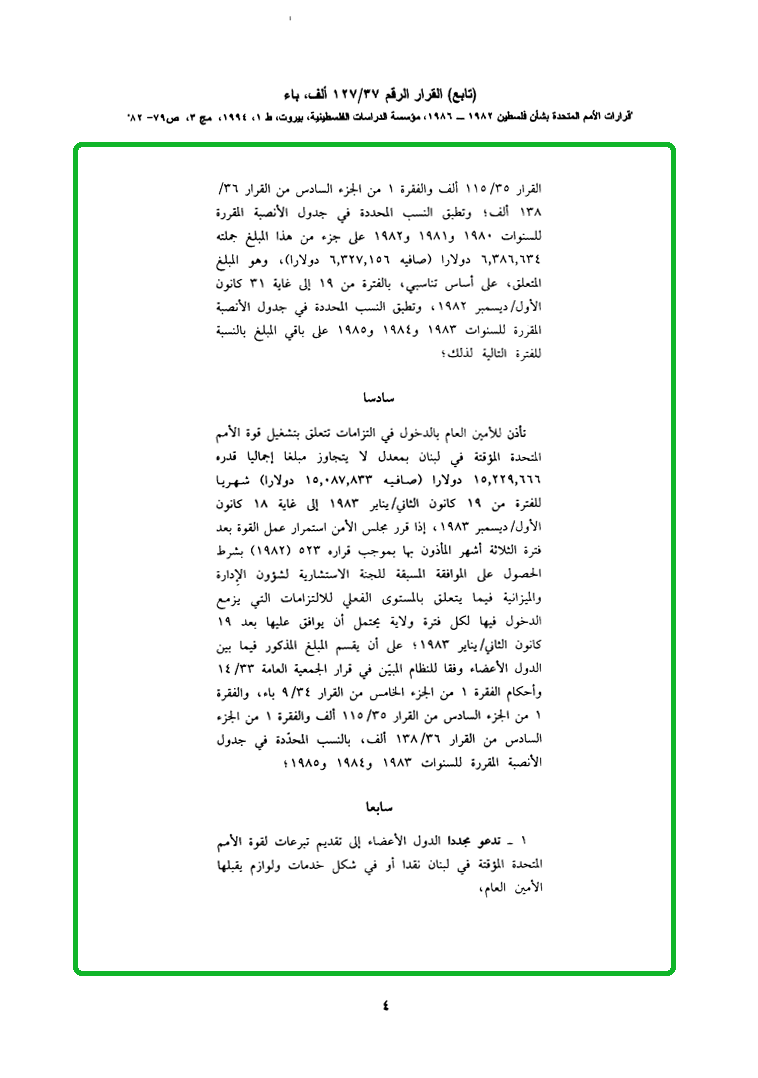 (تابع) القرار الرقم ١٢٧/٣٧ ألف، باء
"قرارات الأمم المتحدة بشأن فلسطين ١٩٨٢ – ١٩٨٦، مؤسسة الدراسات الفلسطينية، بيروت، ط ١، ١٩٩٤، مج ٣، ص٧٩- ٨٢"
القرار ١١٥/٣٥ ألف والفقرة ١ من الجزء السادس من القرار ٣٦/
١٣٨ ألف؛ وتطبق النسب المحددة في جدول الأنصبة المقررة
للسنوات ١٩٨٠ و١٩٨١ و١٩٨٢ على جزء من هذا المبلغ جملته
٦,٣٨٦,٦٣٤ دولارا (صافيه ٦,٣٢٧,١٥٦ دولارا)، وهو المبلغ
المتعلق، على أساس تناسبي، بالفترة من ١٩ إلى غاية ٣١ كانون
الأول/ديسمبر ١٩٨٢، وتطبق النسب المحددة في جدول الأنصبة
المقررة للسنوات ١٩٨٣ و١٩٨٤ و١٩٨٥ على باقي المبلغ بالنسبة
للفترة التالية لذلك؛
سادسا
تأذن للأمين العام بالدخول في التزامات تتعلق بتشغيل قوة الأمم
المتحدة المؤقتة في لبنان بمعدل لا يتجاوز مبلغا إجماليا قدره
١٥,٢٢٩,٦٦٦ دولارا (صافيه ١٥,٠٨٧,٨٣٣ دولارا) شهريا
للفترة من ١٩ كانون الثاني/يناير ١٩٨٣ إلى غاية ١٨ كانون
الأول/ديسمبر ١٩٨٣، إذا قرر مجلس الأمن استمرار عمل القوة بعد
فترة الثلاثة أشهر المأذون بها بموجب قراره ٥٢٣ (١٩٨٢) بشرط
الحصول على الموافقة المسبقة للجنة الاستشارية لشؤون الإدارة
والميزانية فيما يتعلق بالمستوى الفعلي للالتزامات التي يزمع
الدخول فيها لكل فترة ولاية يحتمل أن يوافق عليها بعد ١٩
كانون الثاني/يناير ١٩٨٣؛ على أن يقسم المبلغ المذكور فيما بين
الدول الأعضاء وفقا للنظام المبيّن في قرار الجمعية العامة ١٤/٣٣
وأحكام الفقرة ١ من الجزء الخامس من القرار ٩/٣٤ باء، والفقرة
١ من الجزء السادس من القرار ١١٥/٣٥ ألف والفقرة ١ من الجزء
السادس من القرار ١٣٨/٣٦ ألف، بالنسب المحدّدة في جدول
الأنصبة المقررة للسنوات ١٩٨٣ و١٩٨٤ و١٩٨٥؛
سابعا
١ ـ تدعو مجددا الدول الأعضاء إلى تقديم تبرعات لقوة الأمم
المتحدة المؤقتة في لبنان نقدا أو في شكل خدمات ولوازم يقبلها
الأمين العام،
٤